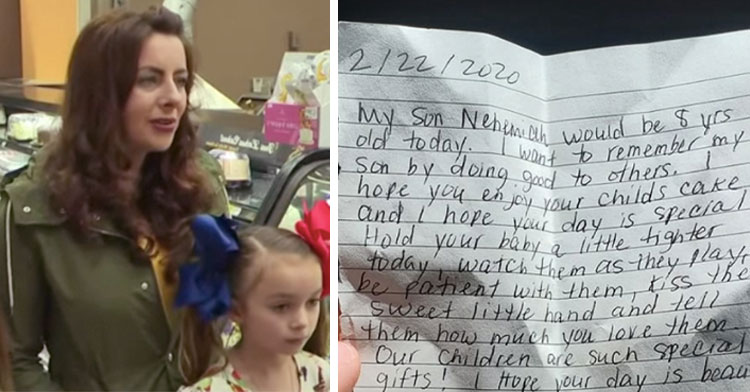 2/22/2020
My Son Nehemiah would be 8 yrs
old today. I want to remember my
son by doing good to others. I
hope you enjoy your childs cake
and I hope your day is special
Hold your baby a little tighter
today, watch them as they play,
be patient with them, kiss the
sweet little hand and tell
them how much you love them.
Our children are such special
gifts! I Hope your day is